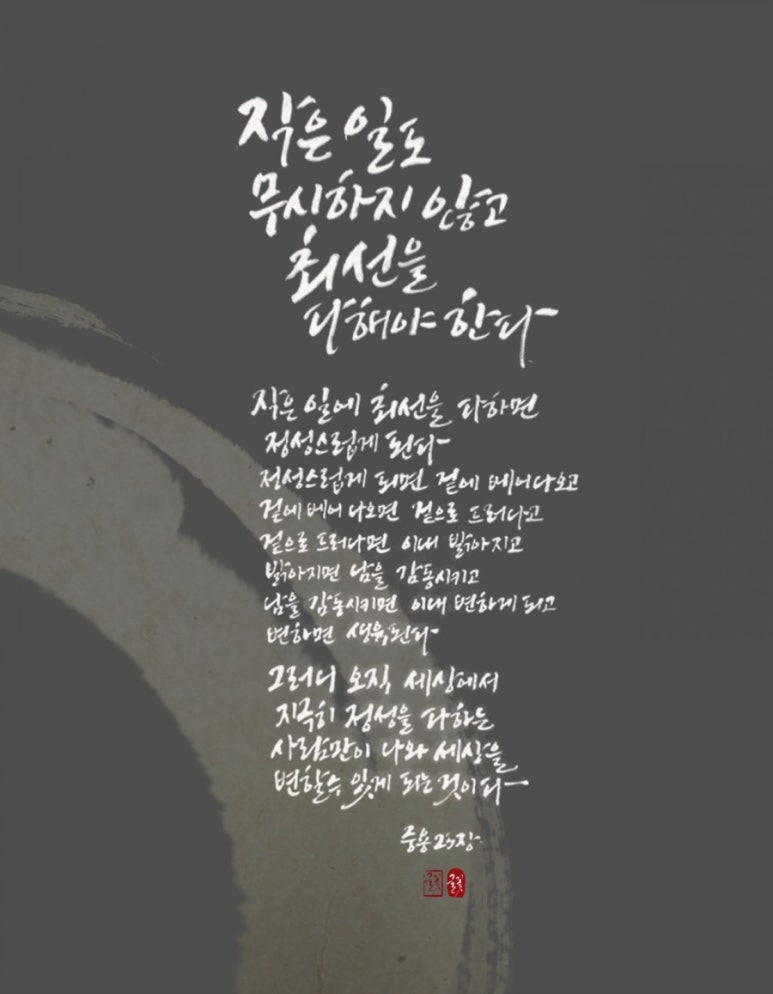 작은 일도
무시하지 않고
최선을
다해야 한다
작은 일에 최선을 다하면
정성스럽게 된다
정성스럽게 되면 겉에 베어나오고
겉에 베어 나오면 겉으로 드러나고
겉으로 드러나면 이내 밝아지고
밝아지면 남을 감동시키고
남을 감동시키면 이내 변하게 되고
변하면 생육된다
그러니 오직 세상에서
지극히 정성을 다하는
사람만이 나와 세상을
변할수 있게 되는 것이다
중용 23장